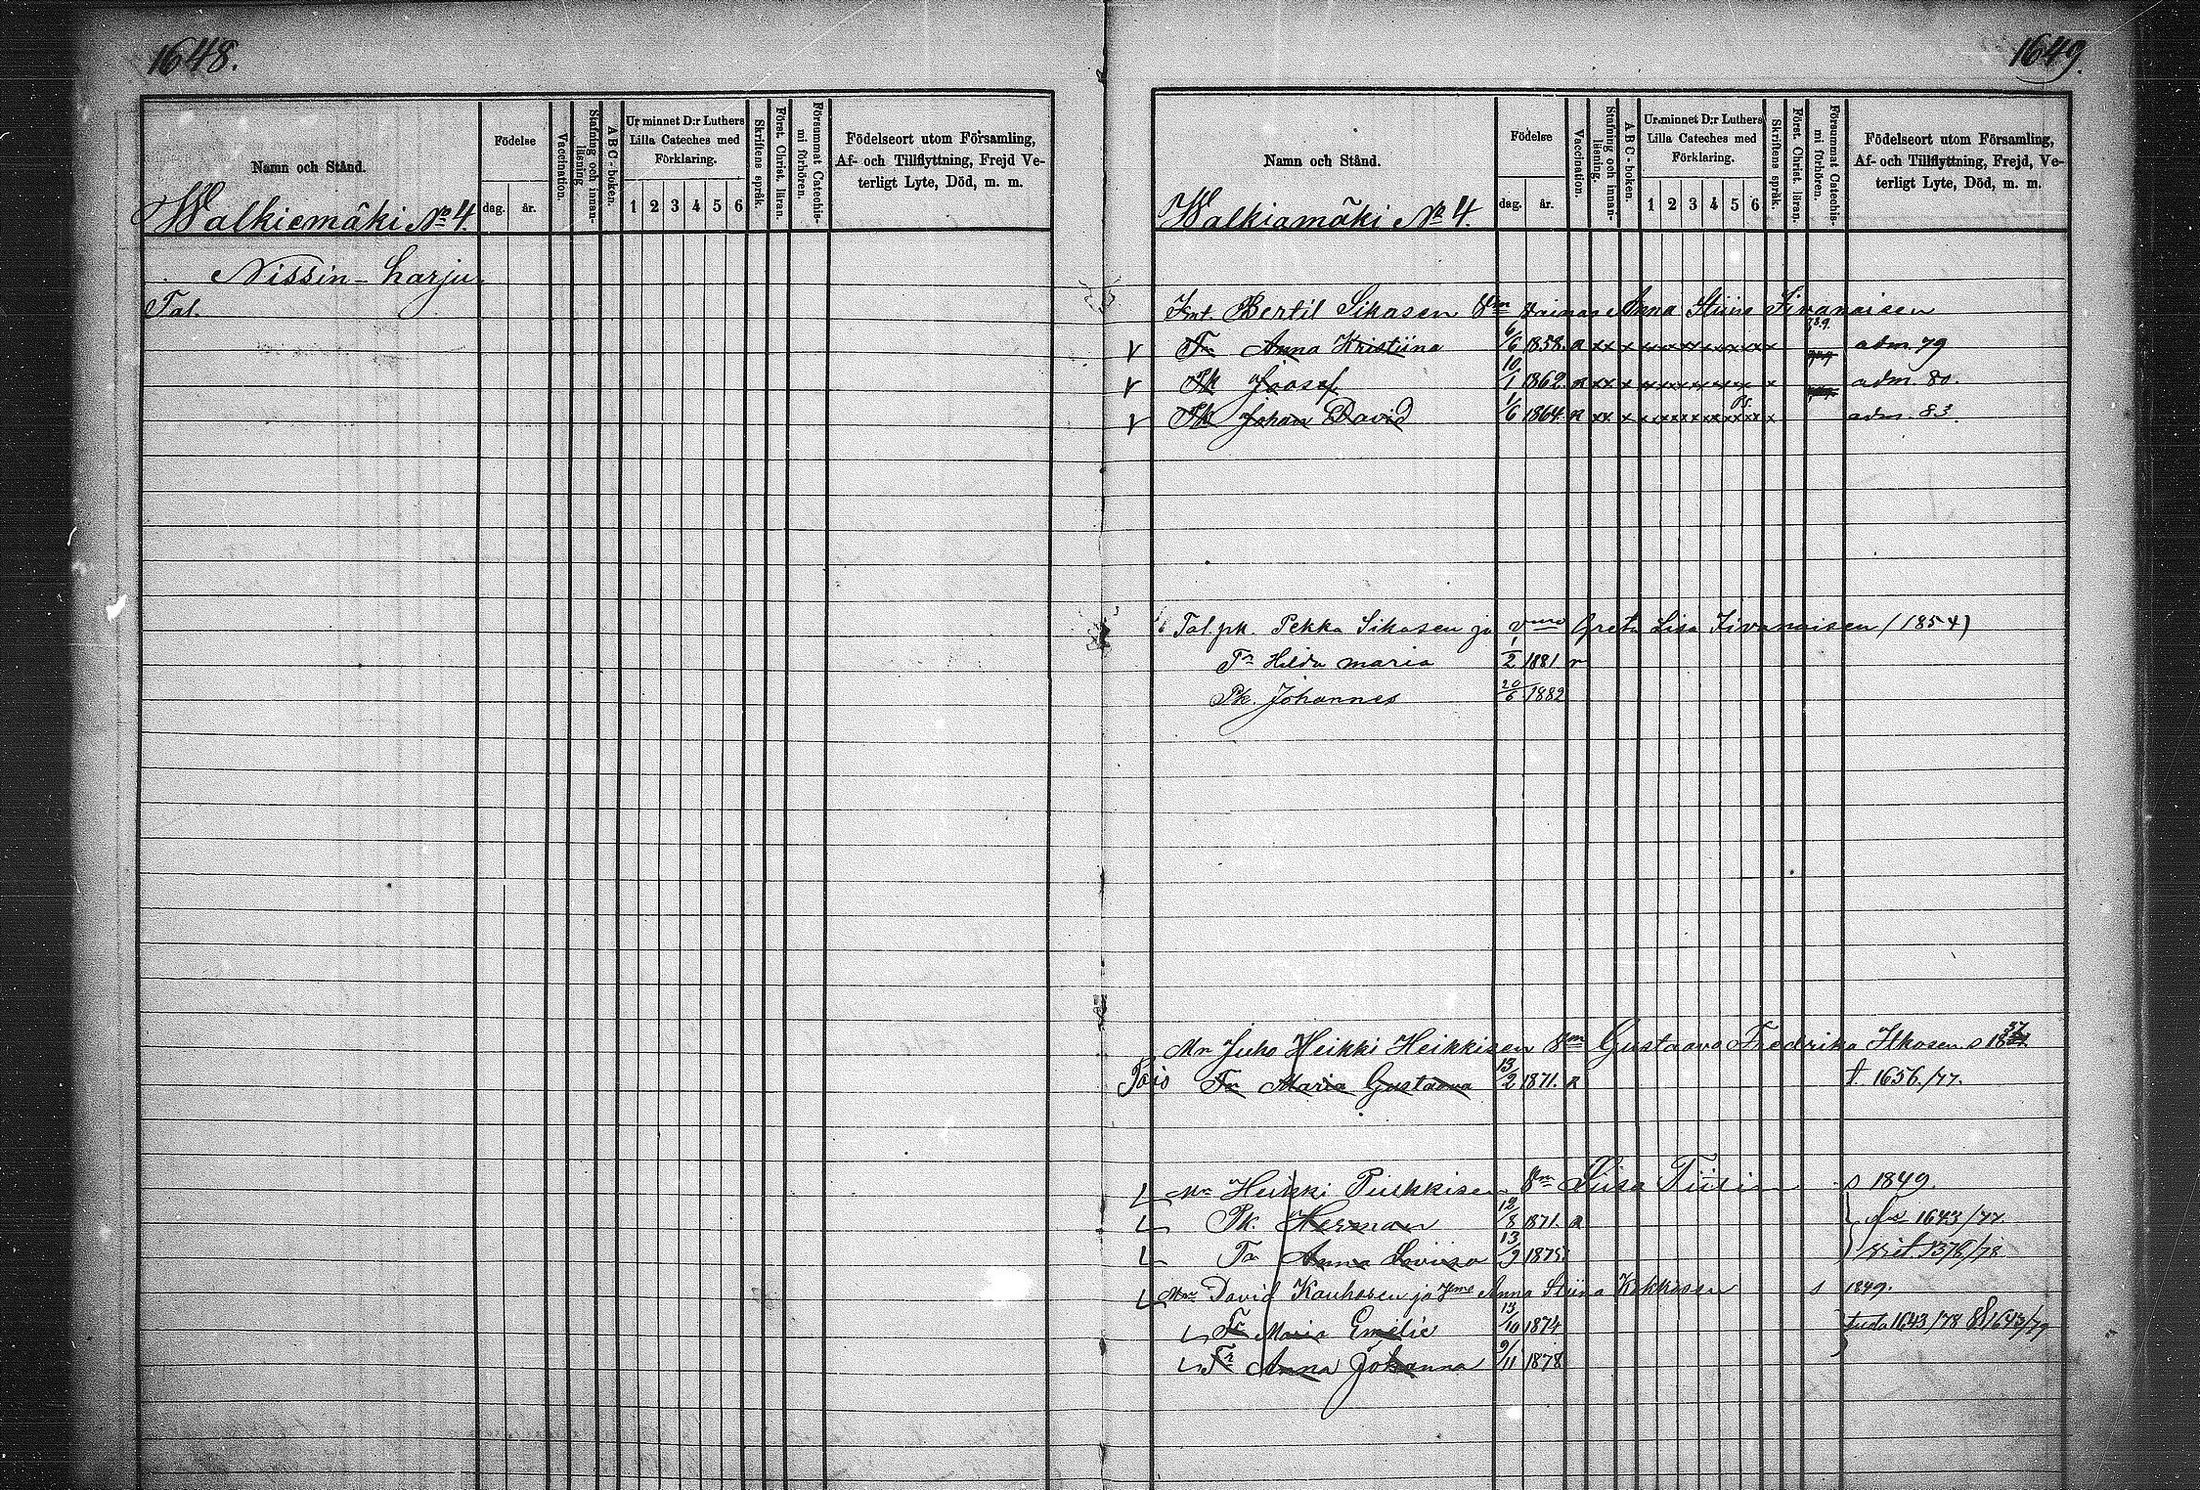 1648.
Namn och Stånd.
Födelse
dag. år.
Vaccination.
Stafning och innan-
läsning
A B C - boken.
Ur minnet D:r Luthers
Lilla Cateches med
Förklaring.
1 2 3 4 5 6
Skriftens språk.
Först. Christ. läran.
Försummat Catechis-
mi förhören.
Födelseort utom Församling,
Af- och Tillflyttning, Frejd Ve-
terligt Lyte, Död, m. m.
Walkiemäki No 4.
Nissin-harju
Tal.
1649.
Namn och Stånd.
Födelse
dag. år.
Vaccination.
Stafning och innan-
läsning.
A B C - boken.
Ur minnet D:r Luthers
Lilla Cateches med
Förklaring.
1 2 3 4 5 6
Skriftens språk.
Först. Christ. läran.
Försummat Catechis-
mi förhören.
Födelseort utom Församling,
Af- och Tillflyttning, Frejd, Ve-
terligt Lyte, Död, m. m.
Walkiamäki No 4.
Bertil Sikasen Anna Stiina
Tr Anna Kristiina 6/6 1858. adm. 79
Pk Joosef 10/1 1862. adm. 80.
Pk Johan David 1/6 1864. adm. 83.
Tal. pk. Pekka Sikasen ja vmo Greta Lisa (1854)
Tr Hilda Maria 1/2 1881
Pk. Johannes 20/6 1882
Mn Juho Heikki Heikkisen Gustaava Fredrika
Pois Tr Maria Gustaava 13/2 1871. 1656./77.
Mn Heikki Pulkkisen Liisa s 1849.
Pk. Herman 12/8 1871. 1643/77.
Tr Anna Loviisa 13/9 1875.
Mn David Kauhasen ja Anna Stiina Kokkosen s 1849.
Tr Maria Emelie 13/10 1874 1643/78
Tr Anna Johanna 9/11 1878